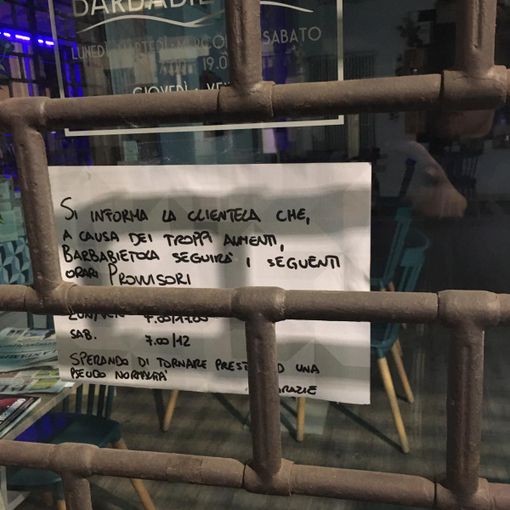 BARBABIE
LUNEDÌ SABATO
19.0
GIOVEDÌ
SI INFORMA LA CLIENTELA CHE,
A CAUSA DEI TROPPI AUMENTI,
BARBABIETOLA SEGUIRÀ I SEGUENTI
ORARI PROVVISORI
LUN/VEN 7.00/17.00
SAB. 7.00/12
SPERANDO DI TORNARE PRESTO AD UNA
PSEUDO NORMALITÀ
GRAZIE